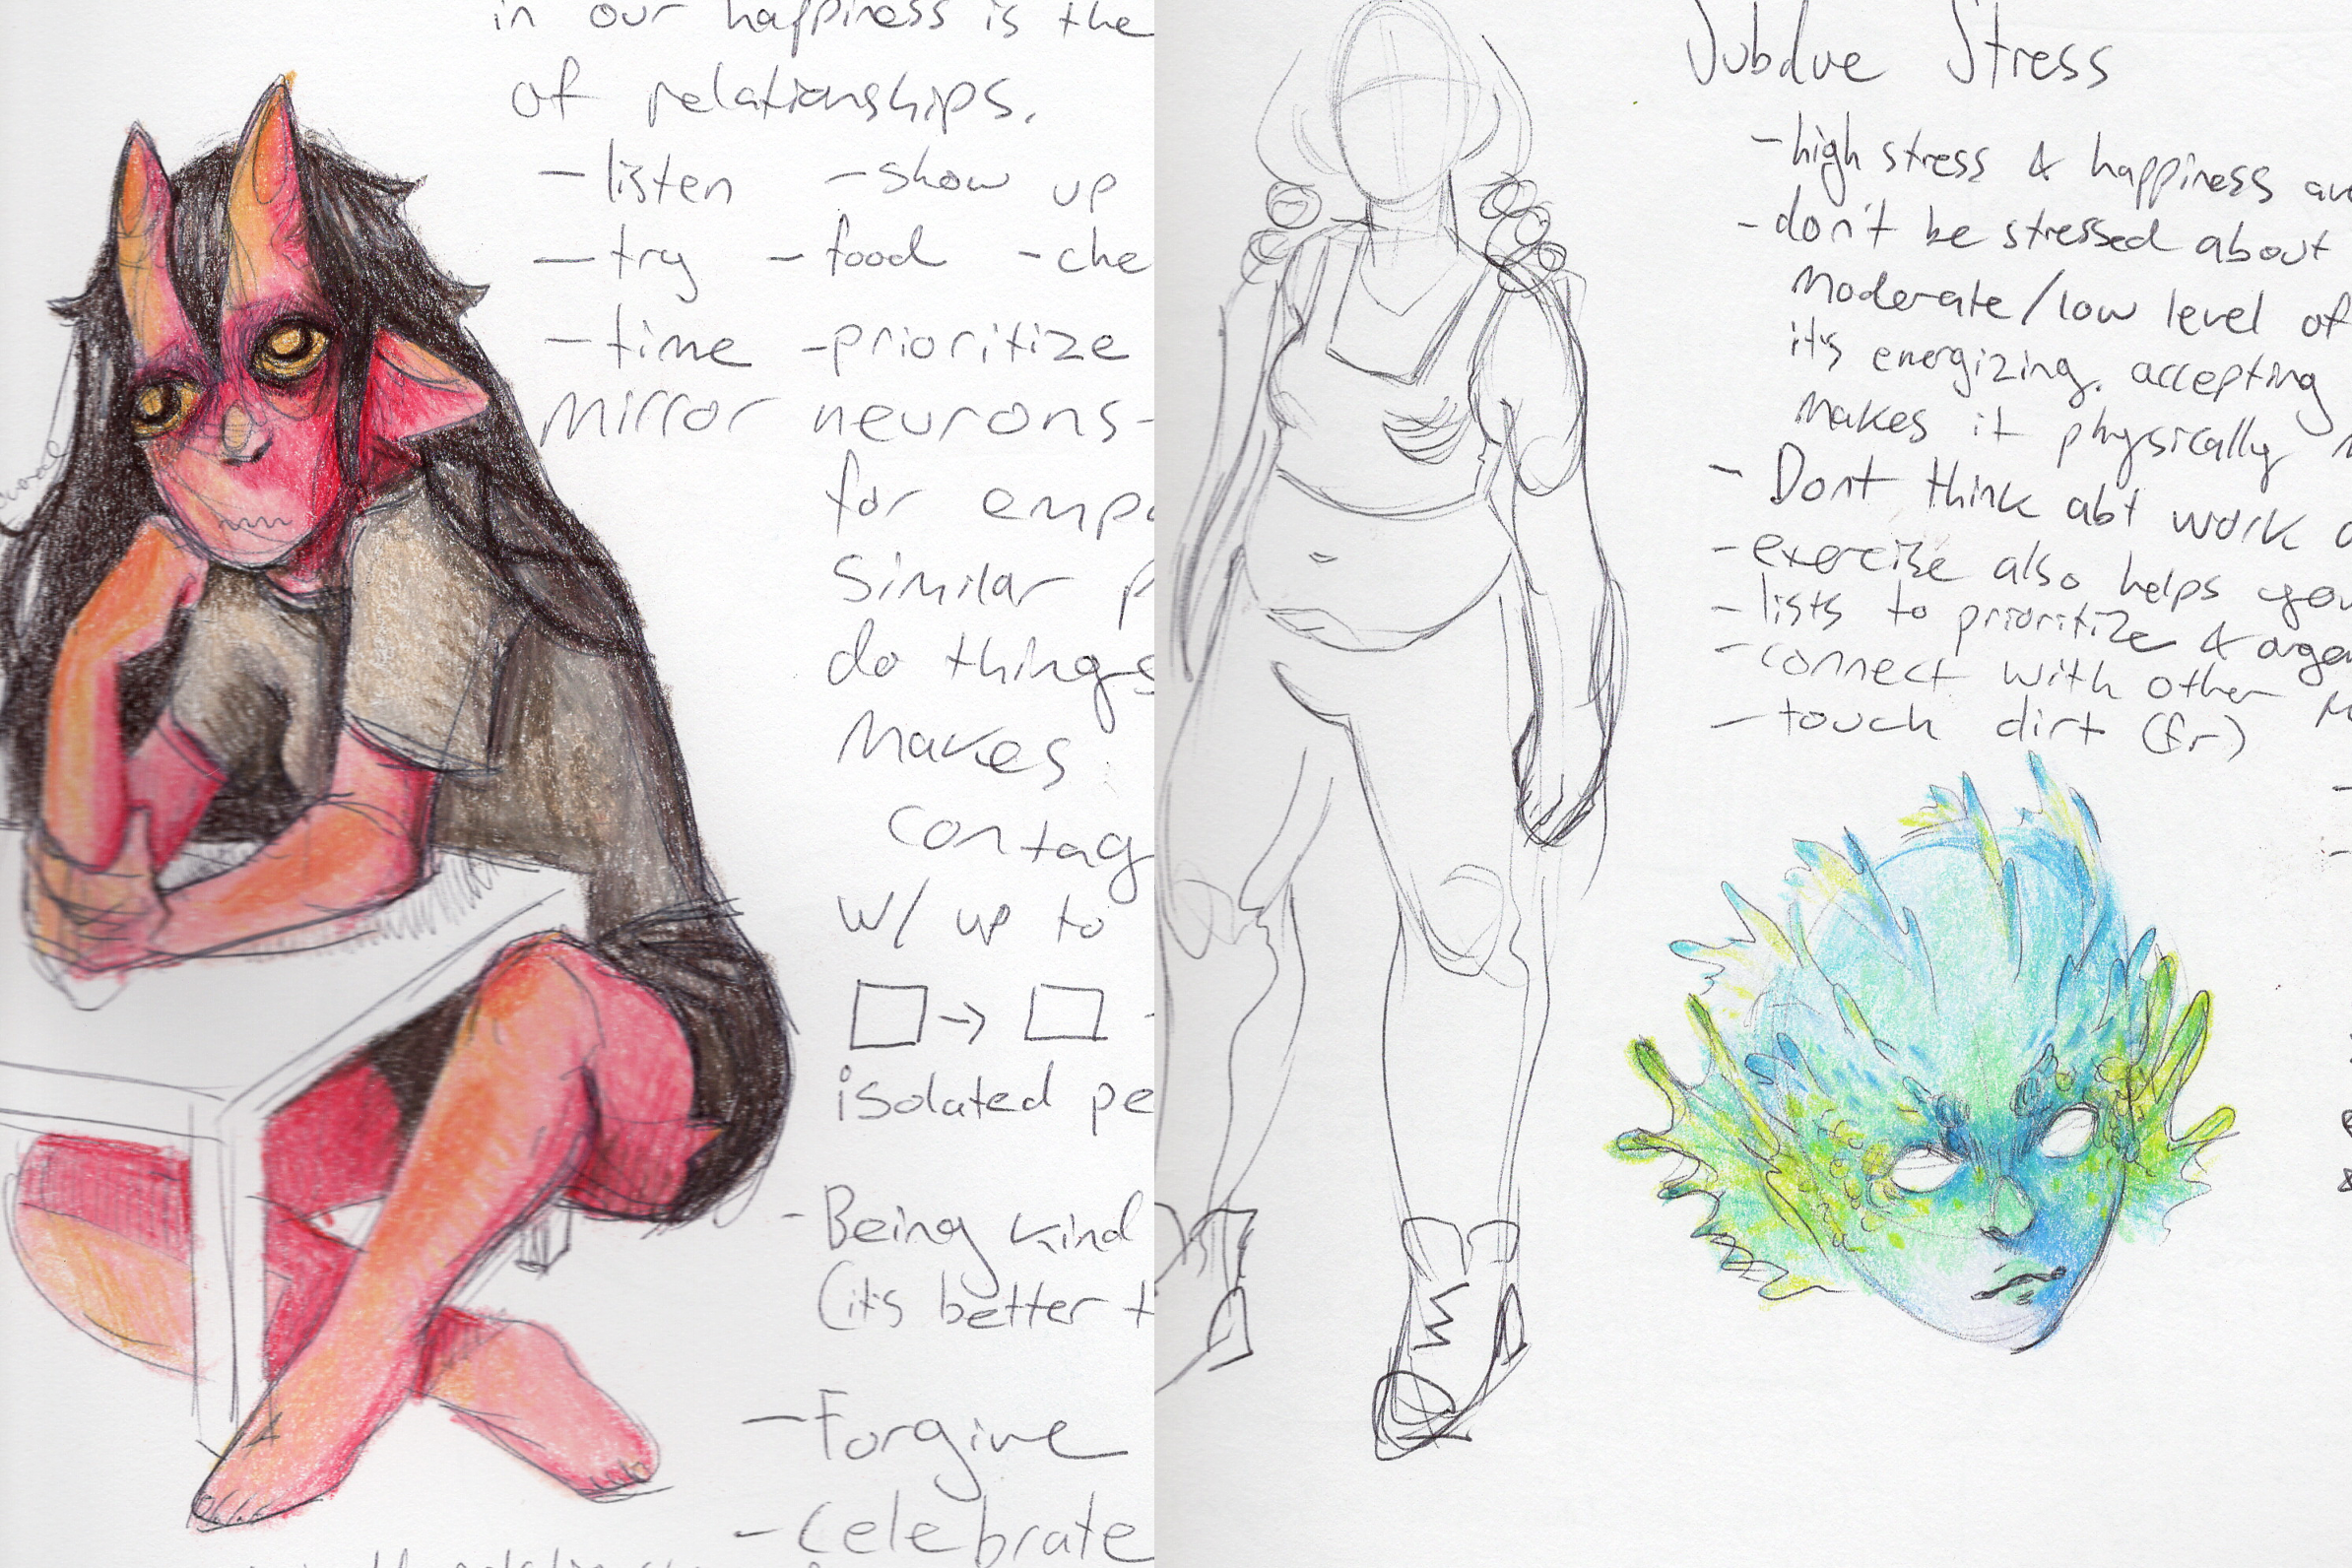 in our happiness is the
of relationships.
- listen - show up
- try - food - che
- time - prioritize
Mirror neurons-
for emp
Similar p
do things
Makes
contag
w/ up to
→
isolated pe
- Being kind
(it's better t
- Forgive
- Celebrate
Subdue Stress
- high stress & happiness are
- don't be stressed about
Moderate/low level of
it's energizing. accepting
Makes it physically
- Dont think abt work
- exercise also helps you
- lists to prioritize & orga
- connect with other
- touch dirt (fr)